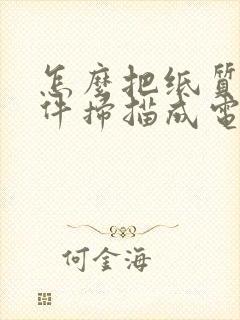 怎麼把纸質
件掃描成電
何金海